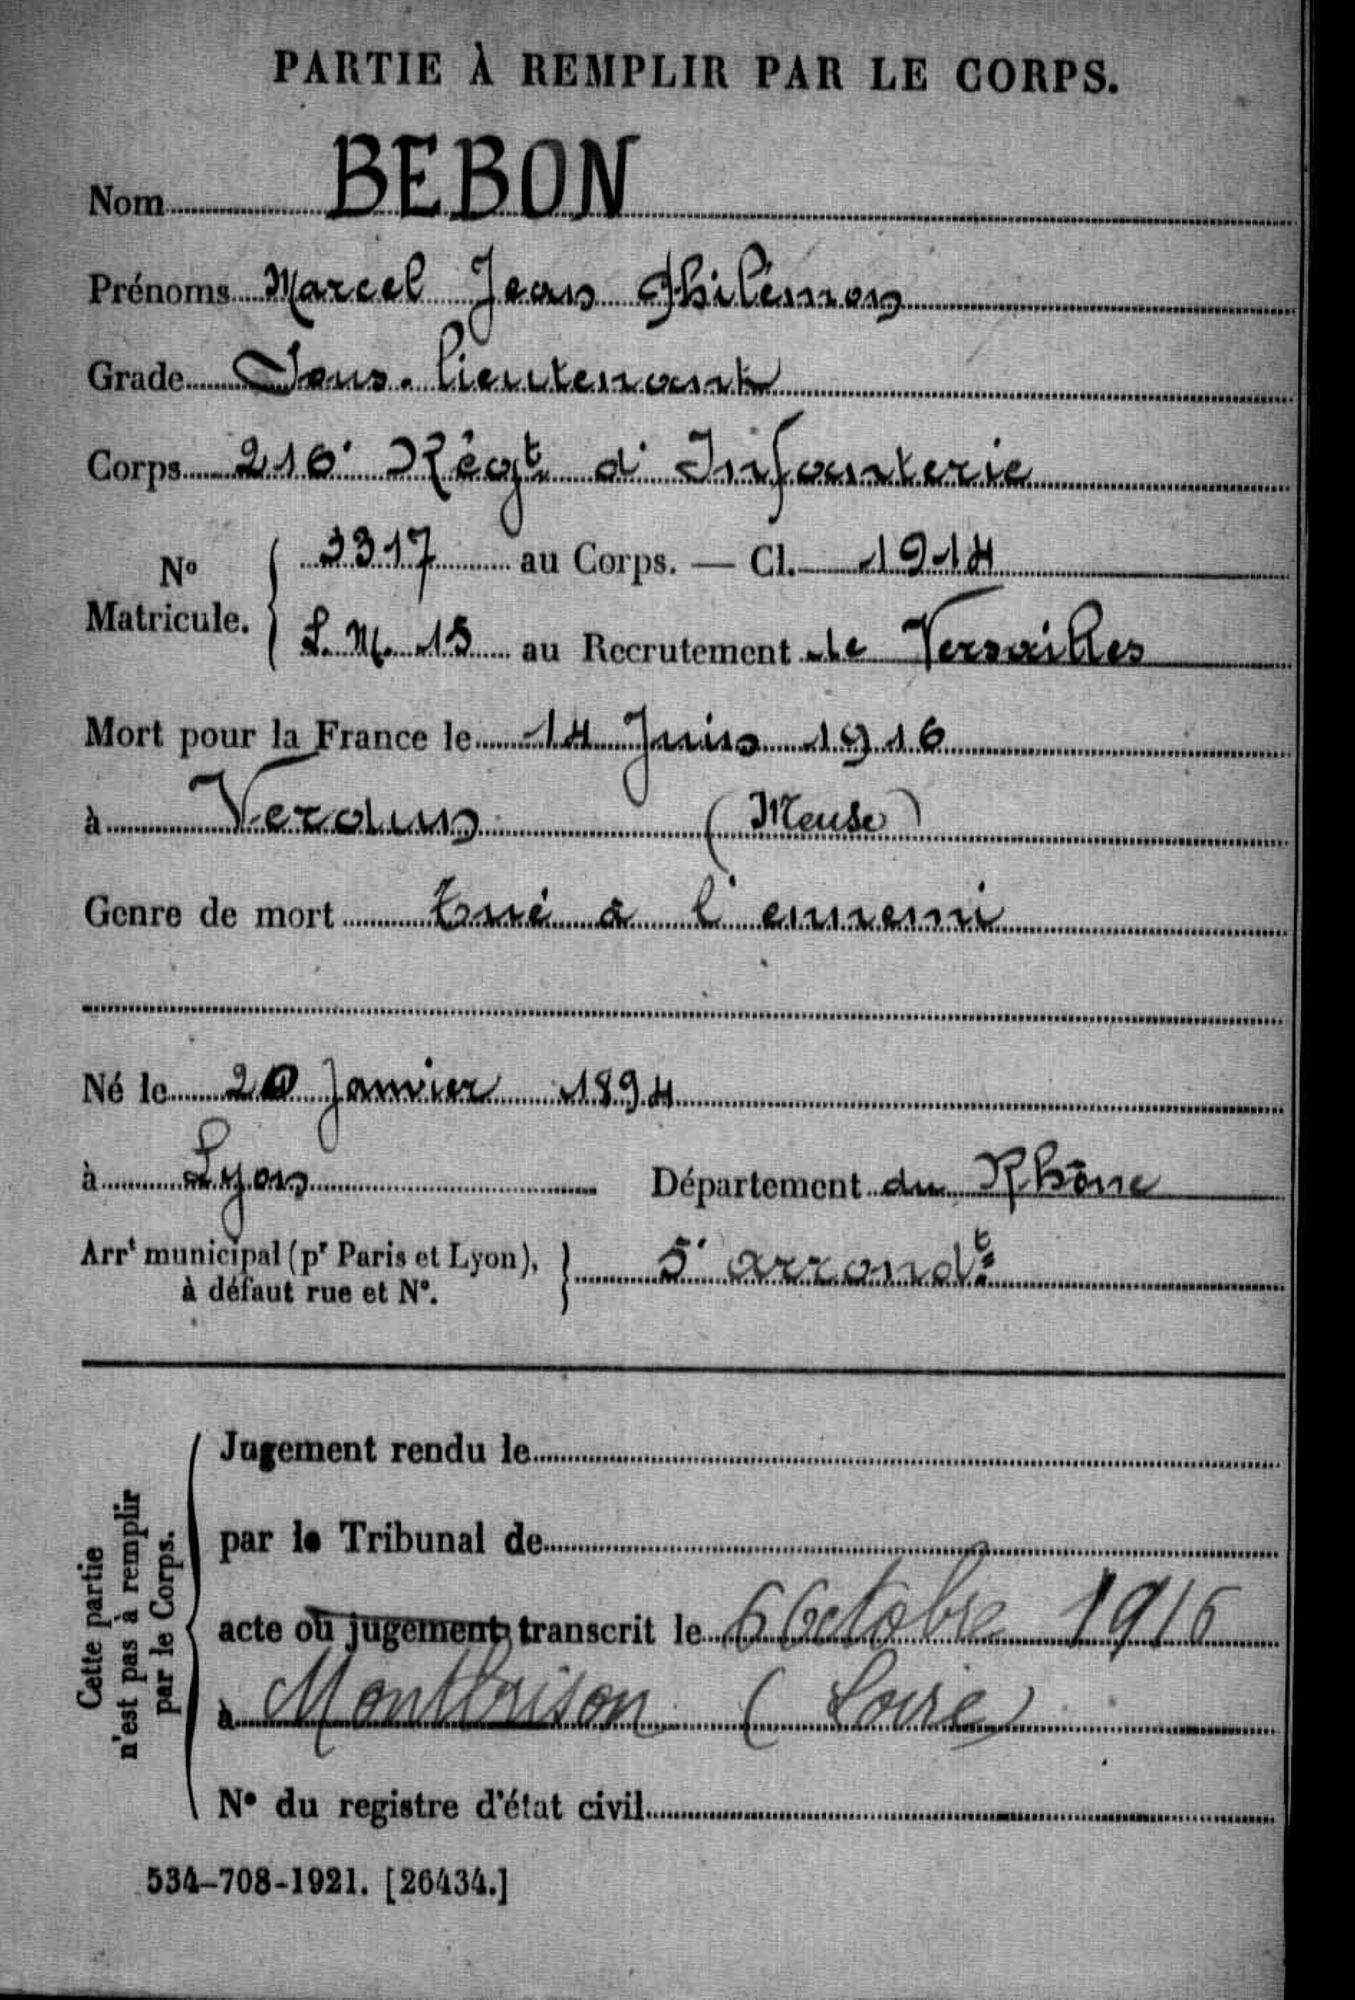 PARTIE À REMPLIR PAR LE CORPS.
Nom BEBON
Prénoms Marcel Jean Philémon
Grade Sous-lieutenant
Corps 216e Régt d'Infanterie
No Matricule. { 3317 au Corps. — Cl. 1914
L. M. 15 au Recrutement de Versailles
Mort pour la France le 14 Juin 1916
à Verdun (Meuse)
Genre de mort tué à l'ennemi
Né le 20 Janvier 1894
à Lyon Département du Rhône
Arrt municipal (pr Paris et Lyon), à défaut rue et No. } 5e arrondt
Cette partie n'est pas à remplir par le Corps.
Jugement rendu le
par le Tribunal de
acte ou jugement transcrit le 6 Octobre 1916
à Montbrison (Loire)
No du registre d'état civil
534-708-1921. [26434.]